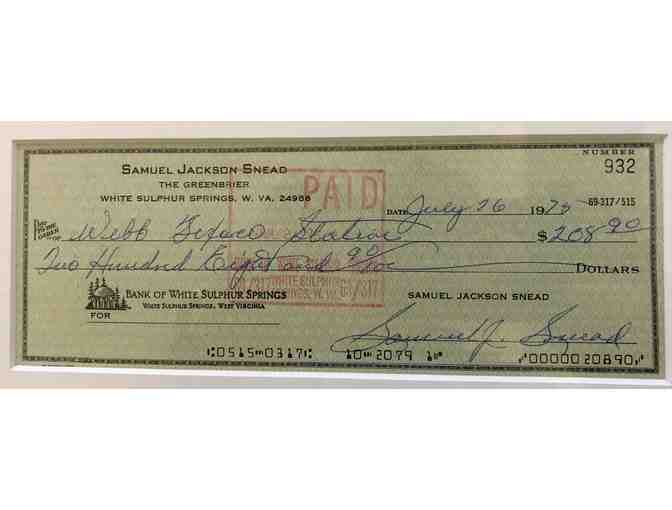 NUMBER
932
SAMUEL JACKSON SNEAD
THE GREENBRIER
WHITE SULPHUR SPRINGS, W. VA. 24986
PAID
DATE July 26 1975 69-317/515
PAY TO THE ORDER OF Webb Texaco Station $208 90
Two Hundred Eight and 90/100 DOLLARS
WHITE SULPHUR
W. V. 69/317
BANK OF WHITE SULPHUR SPRINGS
WHITE SULPHUR SPRINGS, WEST VIRGINIA
SAMUEL JACKSON SNEAD
FOR Samuel J. Snead
⑆0515⑉0317⑆ 10⑉2079 1⑈ ⑈0000020890⑈